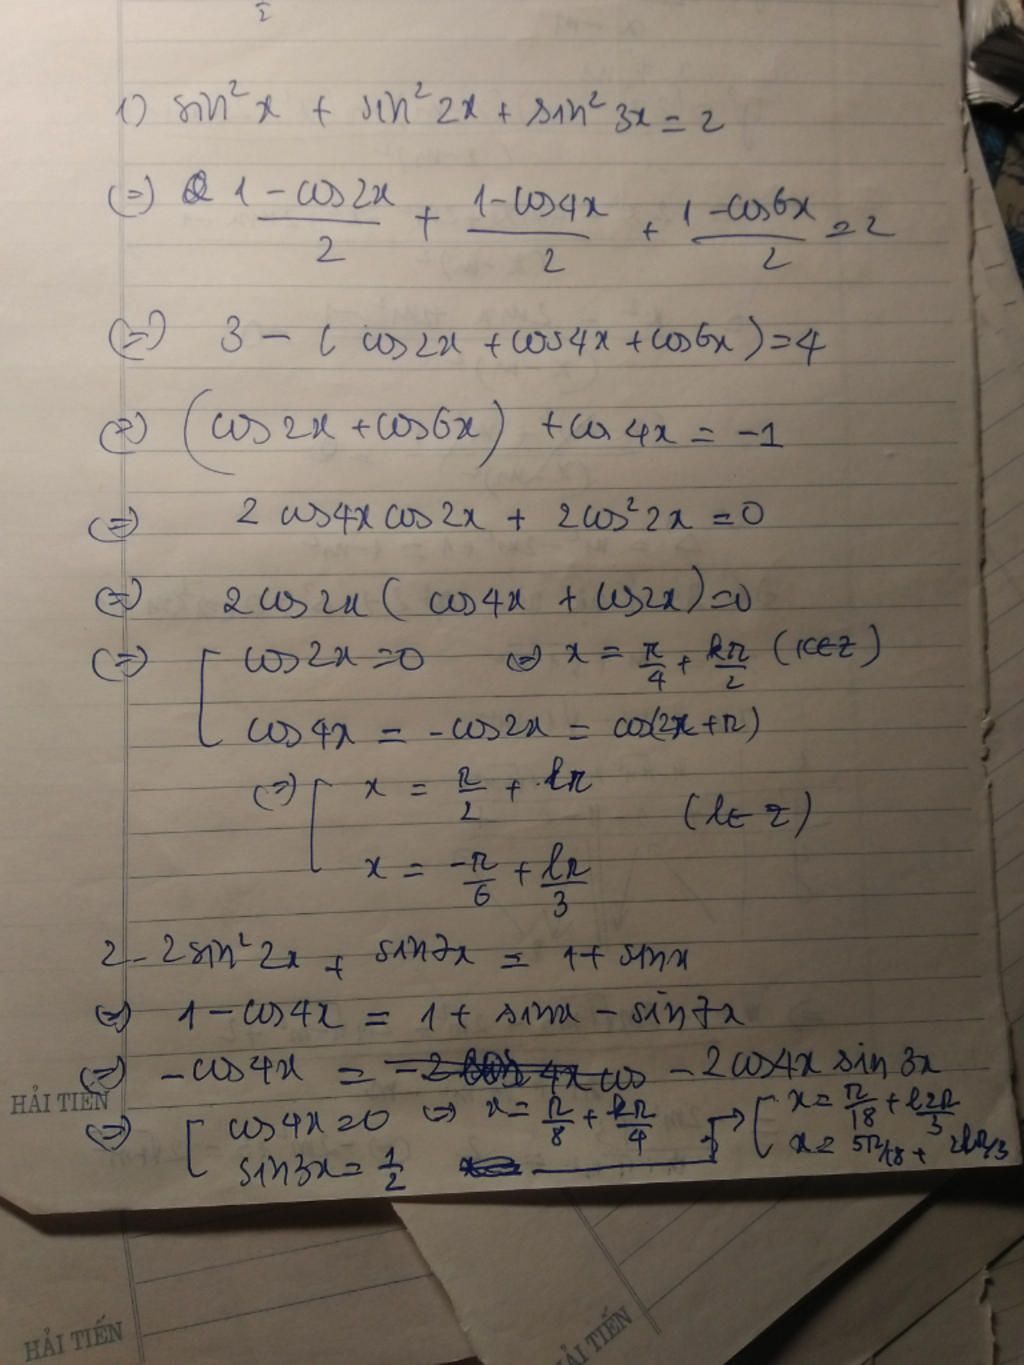 1) sin²x + sin²2x + sin²3x = 2
(=) 1-cos2x/2 + 1-cos4x/2 + 1-cos6x/2 = 2
(=) 3 - (cos2x + cos4x + cos6x) = 4
(=) (cos2x + cos6x) + cos4x = -1
(=) 2cos4xcos2x + 2cos²2x = 0
(=) 2cos2x(cos4x + cos2x) = 0
(=) [ cos2x = 0 (=) x = π/4 + kπ/2 (k∈Z)
cos4x = -cos2x = cos(2x+π)
(=) [ x = π/2 + lπ
(l∈Z)
x = -π/6 + lπ/3
2- 2sin²2x + sin7x = 1 + sinx
(=) 1 - cos4x = 1 + sinx - sin7x
(=) -cos4x = -2cos4x sin3x
(=) [ cos4x = 0 (=) x = π/8 + kπ/4 → [ x = π/18 + l2π/3
sin3x = 1/2 x = 5π/18 + 2lπ/3
HẢI TIẾN
HẢI TIẾN
HẢI TIẾN